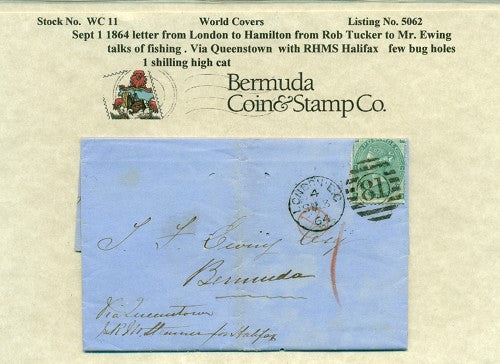 Stock No. WC 11 World Covers Listing No. 5062
Sept 1 1864 letter from London to Hamilton from Rob Tucker to Mr. Ewing
talks of fishing . Via Queenstown with RHMS Halifax few bug holes
1 shilling high cat
Bermuda
Coin&Stamp Co.
LONDON E.C
4
64
81
J F Ewing Esq
Bermuda
Via Queenstown
Steamer for Halifax